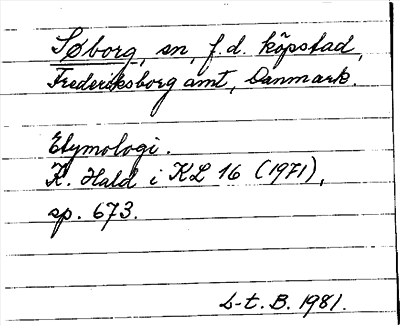 Søborg, sn, f.d. köpstad,
Frederiksborg amt, Danmark.
Etymologi.
K. Hald i KL 16 (1971),
sp. 673.
L-t. B. 1981.